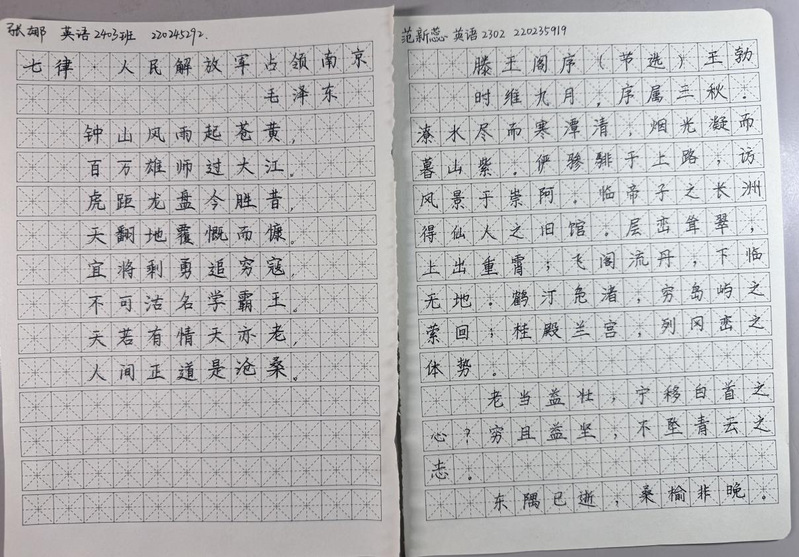 张娜 英语2403班 220245292.
七律·人民解放军占领南京
毛泽东
钟山风雨起苍黄,
百万雄师过大江。
虎距龙盘今胜昔,
天翻地覆慨而慷。
宜将剩勇追穷寇,
不可沽名学霸王。
天若有情天亦老,
人间正道是沧桑。
范新蕊 英语2302 220235919
滕王阁序(节选)王勃
时维九月,序属三秋.
潦水尽而寒潭清,烟光凝而
暮山紫.俨骖騑于上路,访
风景于崇阿.临帝子之长洲
得仙人之旧馆.层峦耸翠,
上出重霄;飞阁流丹,下临
无地.鹤汀凫渚,穷岛屿之
萦回;桂殿兰宫,列冈峦之
体势。
老当益壮,宁移白首之
心?穷且益坚,不坠青云之
志。
东隅已逝,桑榆非晚。